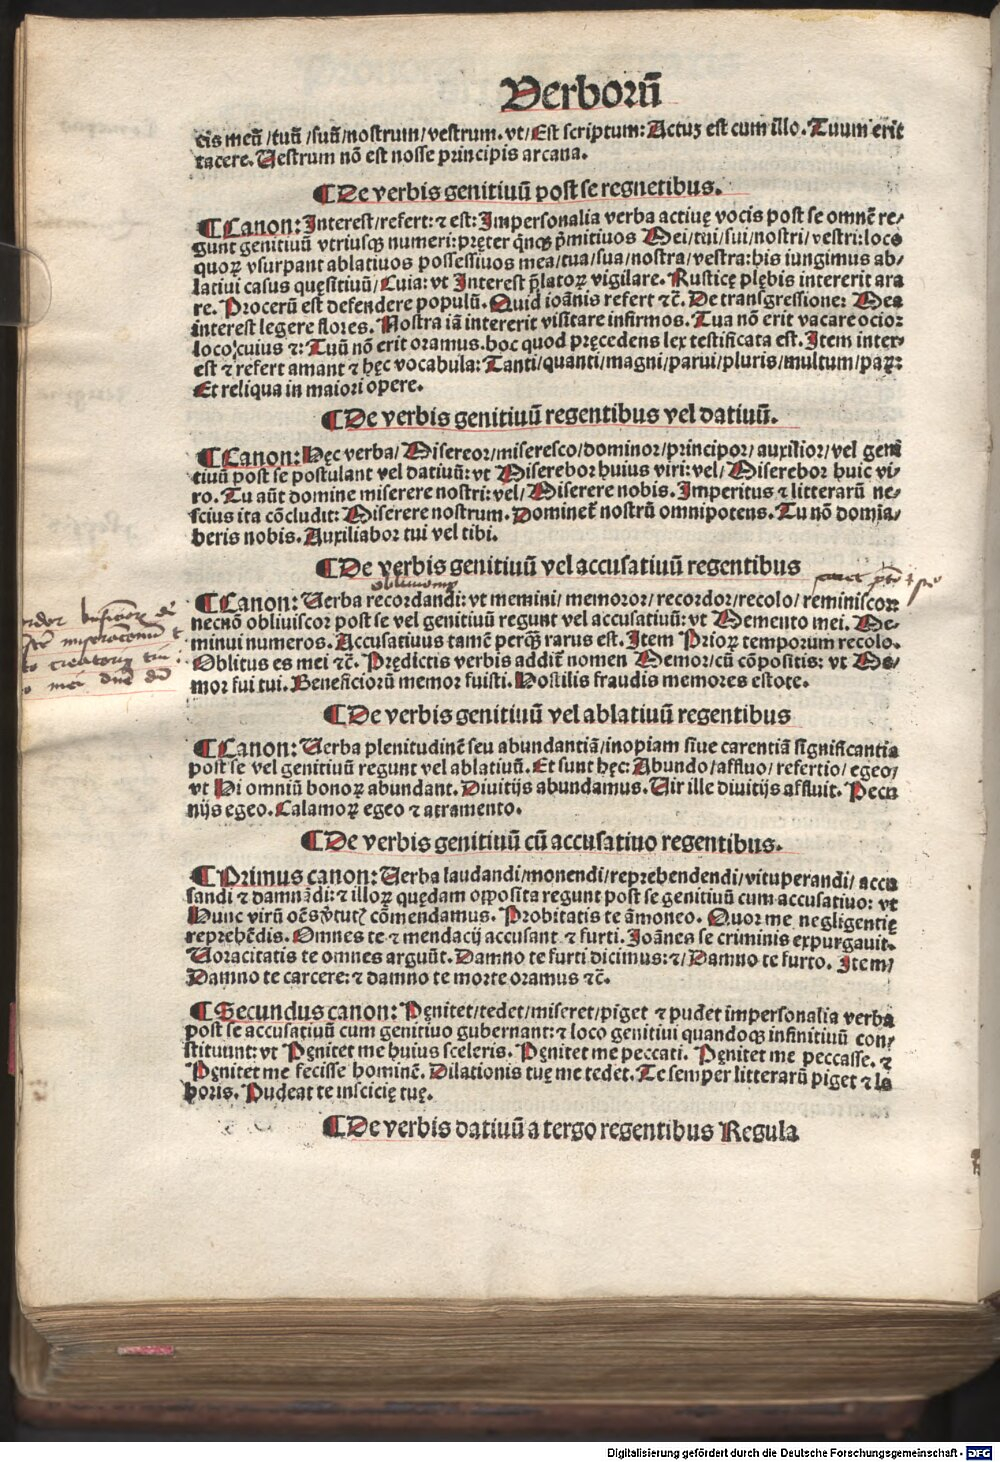 Verborū
cis meū/tuū/suū/nostrum/vestrum. vt/Est scriptum: Actuȝ est cum illo. Tuum erit
tacere. Uestrum nō est nosse principis arcana.
¶De verbis genitiuū post se regnetibus.
¶Canon: Interest/refert: ⁊ est: Impersonalia verba actiuę vocis post se omnē re/
gunt genitiuū vtriusqꝫ numeri: pręter q̄nqꝫ p̄mitiuos Mei/tui/sui/nostri/vestri: loco
quoꝝ vsurpant ablatiuos possessiuos mea/tua/sua/nostra/vestra: his iungimus ab/
latiui casus quęsitiuū/Cuia: vt Interest p̄latoꝝ vigilare. Rusticę plębis intererit ara
re. Procerū est defendere populū. Quid ioānis refert ⁊c̄. De transgressione: Mea
interest legere flores. Nostra iā intererit visitare infirmos. Tua nō erit vacare ocioꝝ
loco/cuius ⁊: Tuū nō erit oramus. hoc quod pręcedens lex testificata est. Item inter/
est ⁊ refert amant ⁊ hęc vocabula: Tanti/quanti/magni/parui/pluris/multum/paꝝ:
Et reliqua in maiori opere.
¶De verbis genitiuū regentibus vel datiuū.
¶Canon: Hęc verba/Misereor/miseresco/dominor/principor/auxilior/vel geni
tiuū post se postulant vel datiuū: vt Miserebor huius viri: vel/Miserebor huic vi/
ro. Tu aūt domine miserere nostri: vel/Miserere nobis. Imperitus ⁊ litterarū ne/
scius ita cōcludit: Miserere nostrum. Dominet̄ nostrū omnipotens. Tu nō domia/
beris nobis. Auxiliabor tui vel tibi.
¶De verbis genitiuū vel accusatiuū regentibus
¶Canon: Uerba recordandi: vt memini/memoror/recordor/recolo/reminiscor:
necnō obliuiscor post se vel genitiuū regunt vel accusatiuū: vt Memento mei. Me/
minui numeros. Accusatiuus tamē perqꝫ rarus est. Item Prioꝝ temporum recolo.
Oblitus es mei ⁊c̄. Prędictis verbis addit̄ nomen Memor/cū cōpositis: vt Me/
mor fui tui. Beneficiorū memor fuisti. Hostilis fraudis memores estote.
¶De verbis genitiuū vel ablatiuū regentibus
¶Canon: Uerba plenitudinē seu abundantiā/inopiam siue carentiā significantia
post se vel genitiuū regunt vel ablatiuū. Et sunt hęc: Abundo/affluo/refertio/egeo/
vt Hi omniū bonoꝝ abundant. Diuitijs abundamus. Uir ille diuitijs affluit. Pecu
nijs egeo. Calamoꝝ egeo ⁊ atramento.
¶De verbis genitiuū cū accusatiuo regentibus.
¶Primus canon: Uerba laudandi/monendi/reprehendendi/vituperandi/accu
sandi ⁊ damnādi: ⁊ illoꝝ quędam opposita regunt post se genitiuū cum accusatiuo: vt
Hunc virū oēs v̄tut cōmendamus. Probitatis te āmoneo. Quor me negligentię
reprehēdis. Omnes te ⁊ mendacij accusant ⁊ furti. Joānes se criminis expurgauit.
Uoracitatis te omnes arguūt. Damno te furti dicimus: ⁊/Damno te furto. Item/
Damno te carcere: ⁊ damno te morte oramus ⁊c̄.
¶Secundus canon: Pęnitet/tedet/miseret/piget ⁊ pudet īmpersonalia verba
post se accusatiuū cum genitiuo gubernant: ⁊ loco genitiui quandoqꝫ infinitiuū con/
stituunt: vt Pęnitet me huius sceleris. Pęnitet me peccati. Pęnitet me peccasse. ⁊
Pęnitet me fecisse hominē. Dilationis tuę me tedet. Te semper litterarū piget ⁊ la
boris. Pudeat te inscicię tuę.
¶De verbis datiuū a tergo regentibus Regula
Digitalisierung gefördert durch die Deutsche Forschungsgemeinschaft - DFG